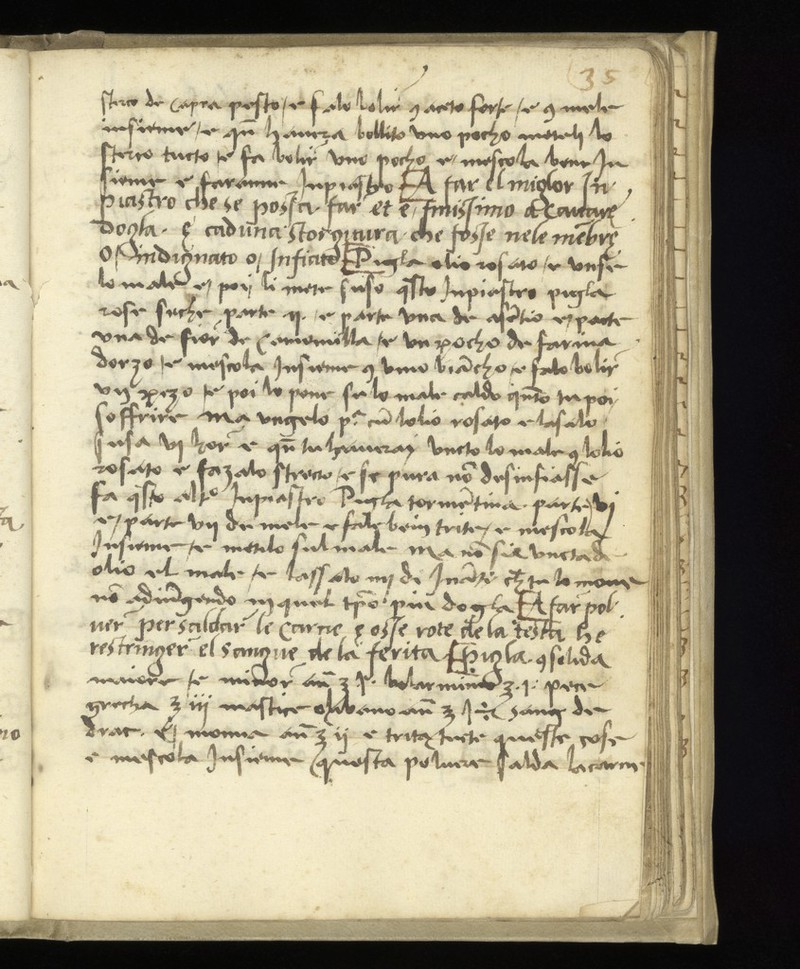 35
sterco de capra pesto / e falo bolir 9 aceto forte / e 9 mele
insieme / e qñ haveza bollito uno pocho meteli lo
sterco tucto / e fa bolir uno pocho e mescola bene In
sieme e faranne Inpiastro A far el miglor In
piastro che se possa far et e finissimo a cavare
dogla. e caduna storgitura che fosse nele mẽbre
O indignato o Infiato Pigla olio rosato / e unse
lo male e poi li mete suso q̃sto Inpiastro pigla
rose seche parte ij. e parte una de asẽtio e parte
una de fior de camomilla / e un pocho de farina
dorzo / e mescola Insieme 9 vino biãcho e falo bolir
un pezo / e poi lo pone su lo male caldo q̃nto tu poi
soffrire ma ungelo p.ª cũ lolio rosato e lasalo
susa vi hor e qñ tu haveray uncto lo male 9 lolio
rosato e fazalo strecto / e se pura nõ desinfiasse
fa q̃sto altro Inpiastro Pigla tormẽtina parte vi
e parte vii de mele e fale bein trite e mescola
Insieme / e metilo sul male ma nõ sia unctade
olio el male / e lassalo iiij di Inãte ch̃ tu lo move
nõ adiũgendo in quel tp̃o piu dogla A far pol
ver per saldar le carne e osse rote de la testa he
restringer el sangue de la ferita Pigla 9solida
maiore / e minor añ ʒ j. bolarminio ʒ. j. pece
grecha ʒ iii mastice olibano añ ʒ j sang de
drac. et momia añ ʒ ij e trita tucte queste cose
e mescola Insieme questa polvere salda la carne